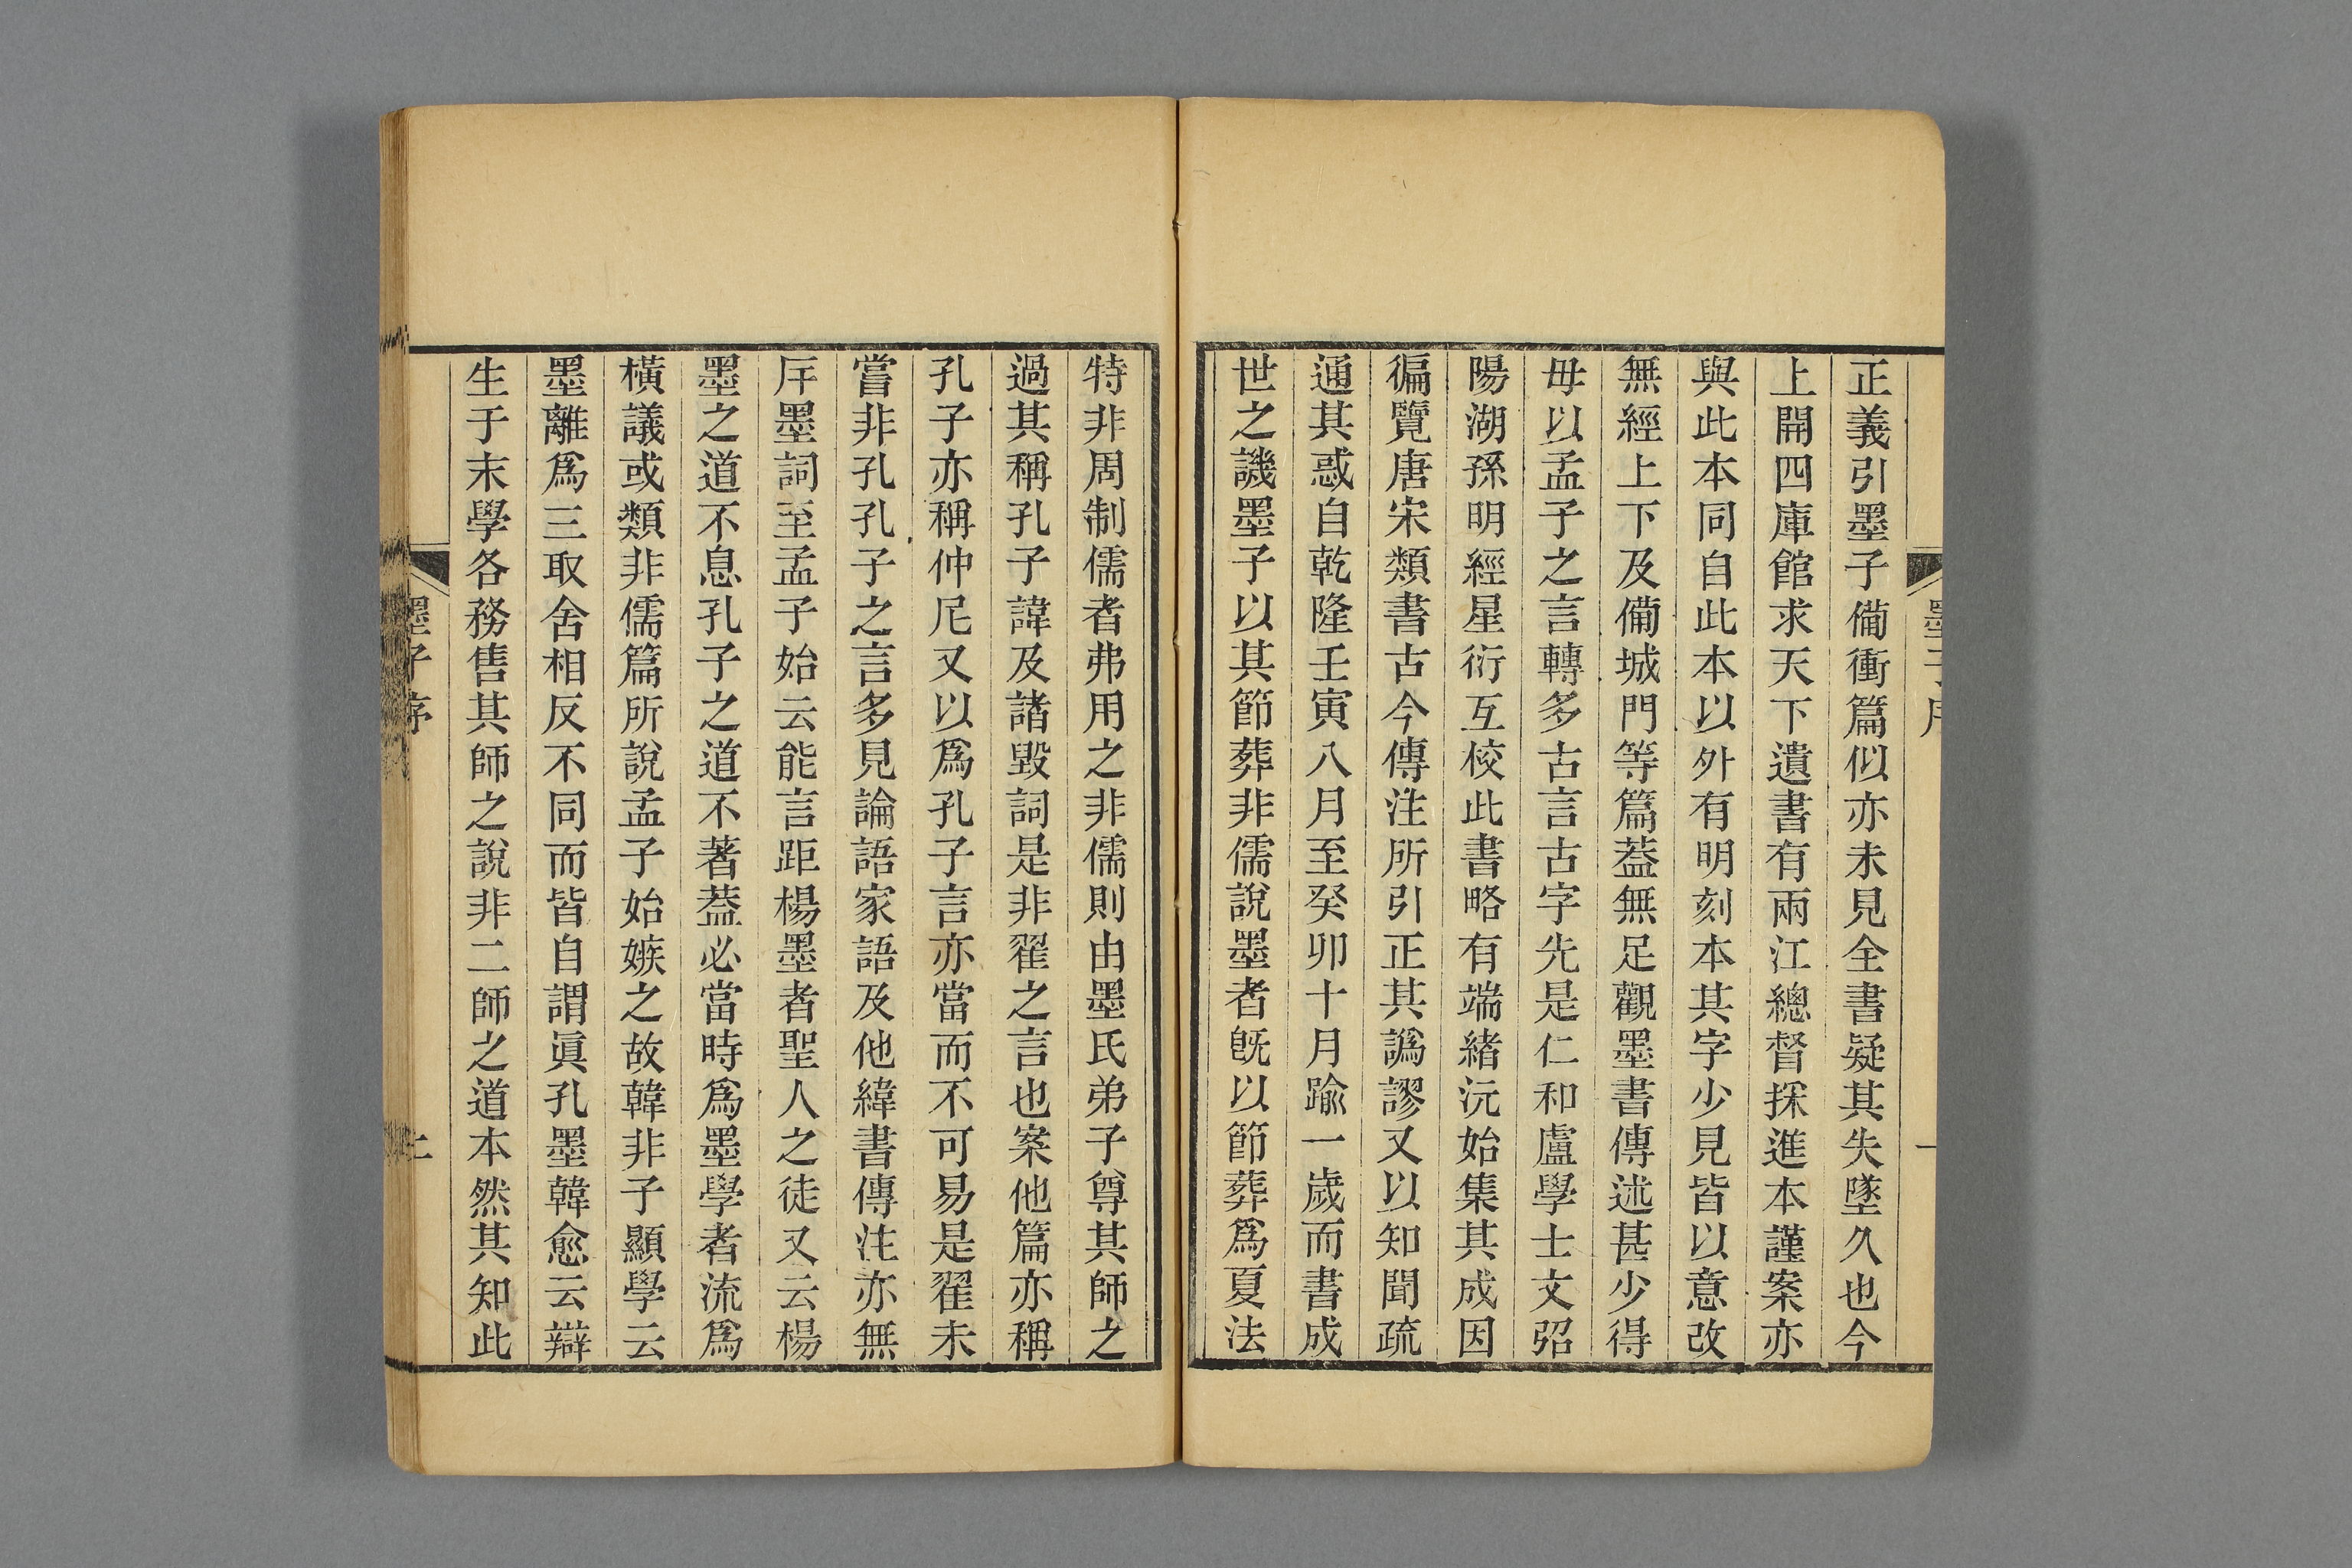 正義引墨子備衝篇似亦未見全書疑其失墜久也今
上開四庫館求天下遺書有兩江總督採進本謹案亦
與此本同自此本以外有明刻本其字少見皆以意改
無經上下及備城門等篇葢無足觀墨書傳述甚少得
毋以孟子之言轉多古言古字先是仁和盧學士文弨
陽湖孫明經星衍互校此書略有端緒沅始集其成因
徧覽唐宋類書古今傳注所引正其譌謬又以知聞疏
通其惑自乾隆壬寅八月至癸卯十月踰一歲而書成
世之譏墨子以其節葬非儒說墨者旣以節葬爲夏法
特非周制儒者弗用之非儒則由墨氏弟子尊其師之
過其稱孔子諱及諸毀詞是非翟之言也案他篇亦稱
孔子亦稱仲尼又以爲孔子言亦當而不可易是翟未
嘗非孔孔子之言多見論語家語及他緯書傳注亦無
斥墨詞至孟子始云能言距楊墨者聖人之徒又云楊
墨之道不息孔子之道不著葢必當時爲墨學者流爲
橫議或類非儒篇所說孟子始嫉之故韓非子顯學云
墨離爲三取舍相反不同而皆自謂眞孔墨韓愈云辯
生于末學各務售其師之說非二師之道本然其知此
墨子序